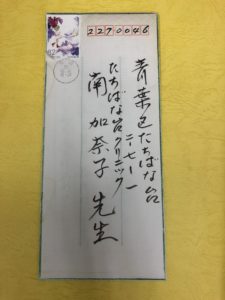 2270046
青葉区たちばな台
二ー七ー一
たちばな台クリニック
南 加奈子 先生
82